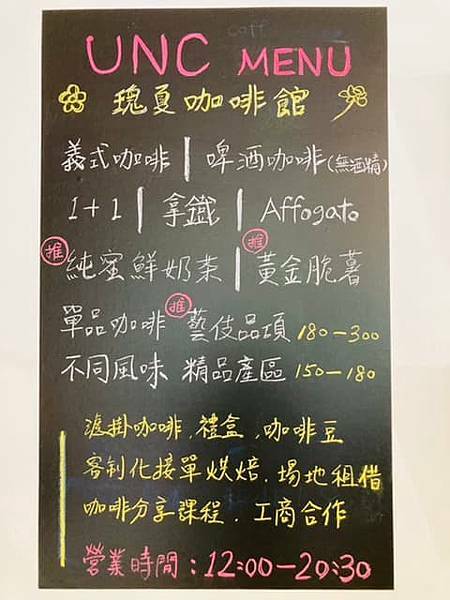 UNC MENU
瑰夏咖啡館
義式咖啡 | 啤酒咖啡(無酒精)
1+1 | 拿鐵 | Affogato
推 純蜜鮮奶茶 | 推 黃金脆薯
單品咖啡 推 藝伎品項 180-300
不同風味 精品產區 150-180
濾掛咖啡.禮盒.咖啡豆
客制化接單烘焙.場地租借
咖啡分享課程.工商合作
營業時間:12:00-20:30